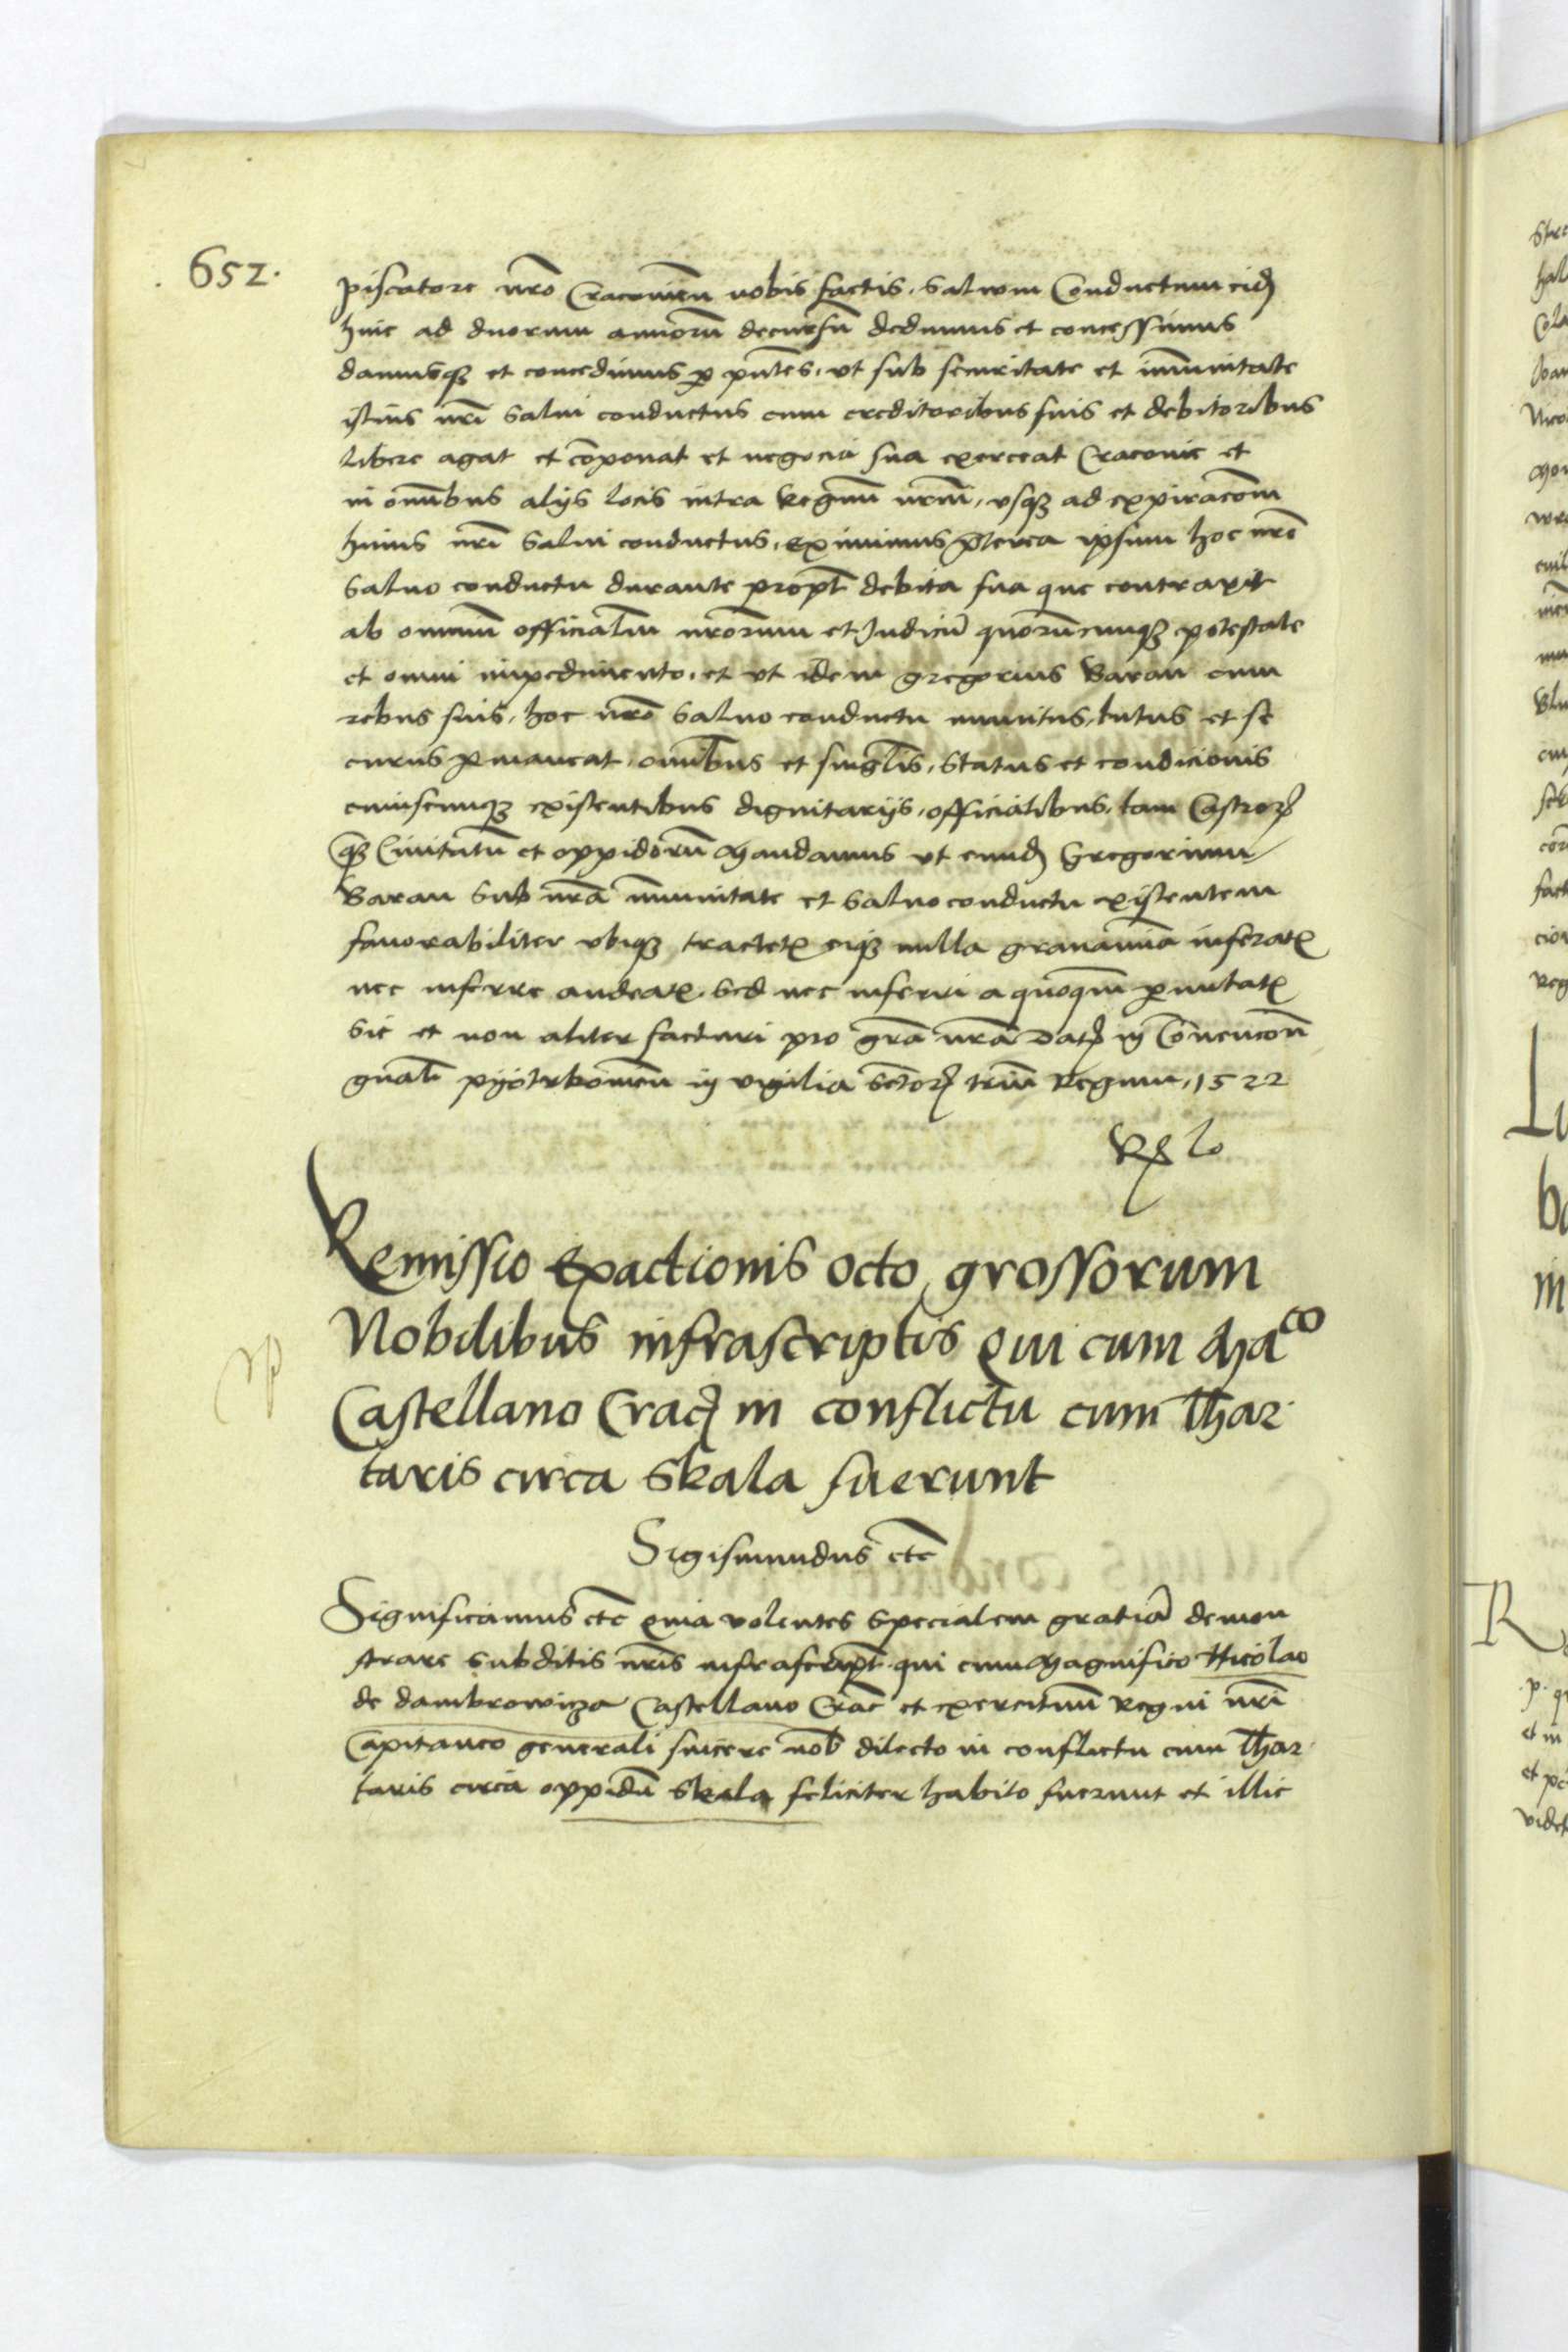 652.
piscatore nr̃o Cracovieñ nobis factis, Salvum Conductum eid
hinc ad duorum annorũ decursũ dedimus et concessimus
damusqȝ et concedimus p pñtes, vt sub securitate et im̃unitate
istius nrĩ salvi conductus cum creditoribus suis et debitoribus
libere agat et cõponat et negocia sua exerceat Cracovie et
in omnĩbus alijs locis intra Regnũ nrũm, vsqȝ ad expiracõm
huius nrĩ salvi conductus, Eximimus p̃terea ipsum hoc nrõ
salvo conductu durante propt̃ debita sua que contraxit
ab omniũ officialiũ nrõrum et Judicũ quorũcumqȝ potestate
et omni impedimento, et vt idem gregorius Baran cum
rebus suis, hoc nrõ salvo conductu munitus, tutus et se
curus pmaneat, omĩbus et sing̃lis, status et condicionis
cuiuscumqȝ existentibus dignitarijs, officialibus, tam Castror
qȝ Civitatũ et oppidorũ Mandamus vt eund Gregorium
Baran sub nrã im̃unitate et salvo conductu existentem
favorabiliter vbiqȝ tractet eiqȝ nulla gravamĩa inferat
nec inferre audeat, sed nec inferri a quoqm̃ pmittat
sic et non aliter facturi pro grã nrã Dat in Convencõn
gnãli pyotrkovieñ in vigilia Sctõr triũ Regum, 1522
Remissio Exactionis octo grossorum
Nobilibus infrascriptis Qui cum Ma͠co
Castellano Crac in conflictu cum Thar
taris circa Skala fuerunt
Sigismundus etc̃
Significamus etc̃ Quia volentes specialem gratiã demon
strare subditis nrĩs infrascript̃ qui cum Magnifico Nicolao
de dambrowicza Castellano Crac̃ et exercituũ Regni nrĩ
Capitaneo generali sincere nob̃ dilecto in conflictu cum Thar
taris circa oppidũ Skala feliciter habito fuerunt et illic